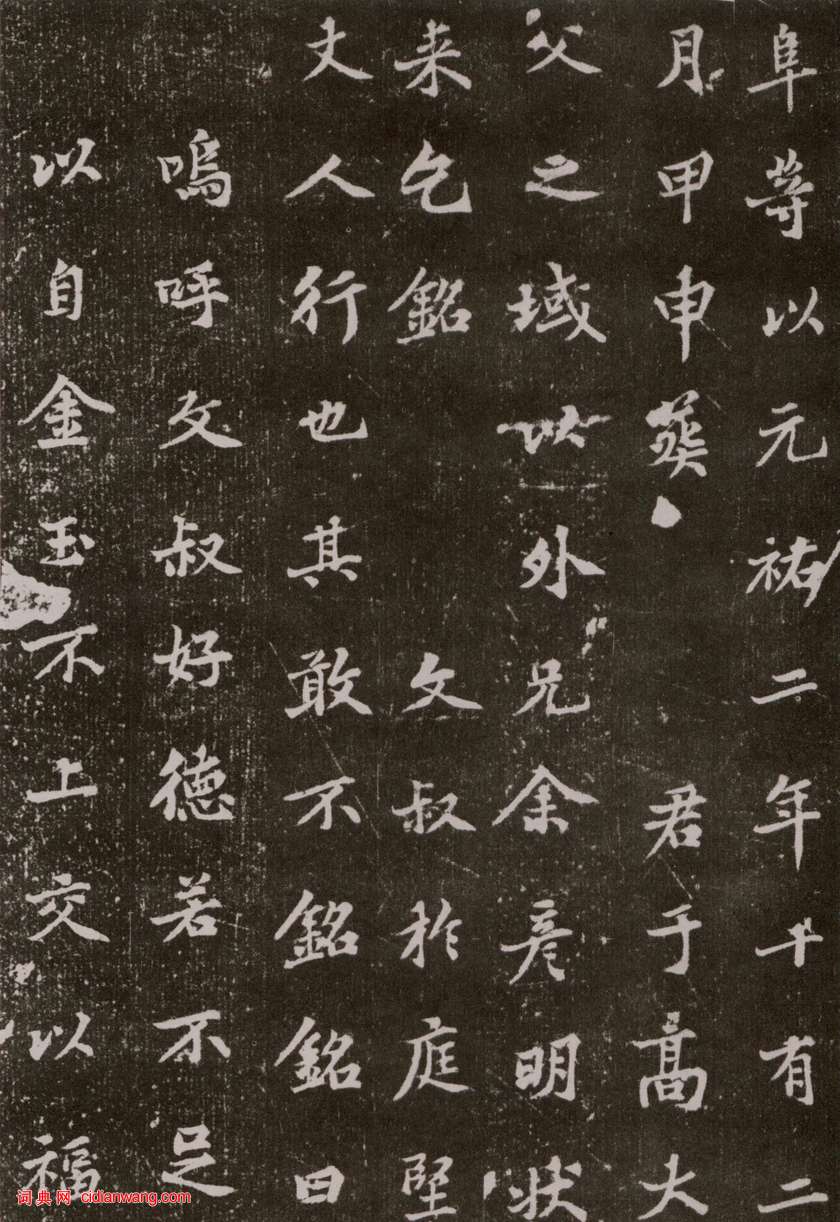 阜等以元祐二年十有二
月甲申葬君于高大
父之域以外兄余彦明状
来乞銘文叔於庭堅
丈人行也其敢不銘銘曰
嗚呼文叔好德若不足
以自金玉不上交以福
词典网 cidianwang.com